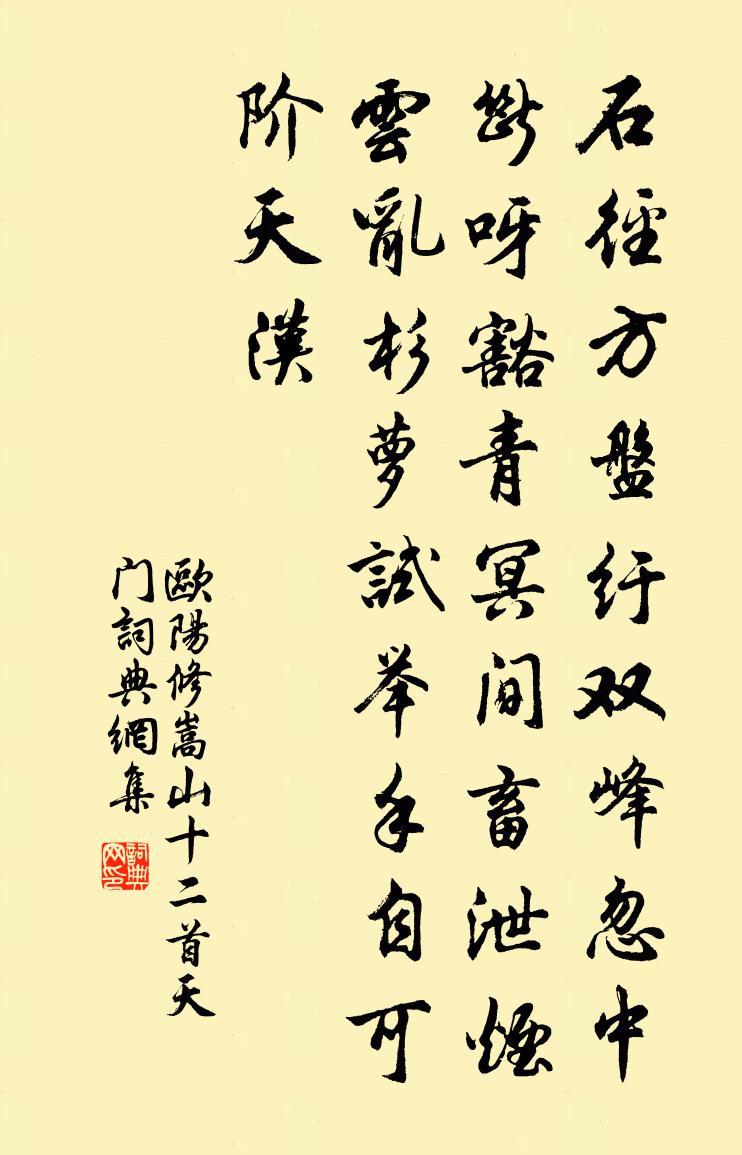 石徑方盤紆双峰忽中
断呀豁青冥间畜泄煙
雲亂杉萝試举手自可
阶天漢
歐陽修嵩山十二首天
门詞典網集
詞典网印